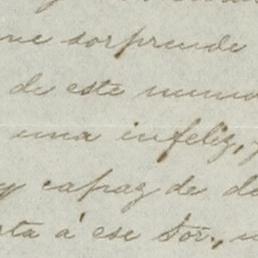 me sorprende
de este
una infeliz,
capaz de
á ese Sor.,